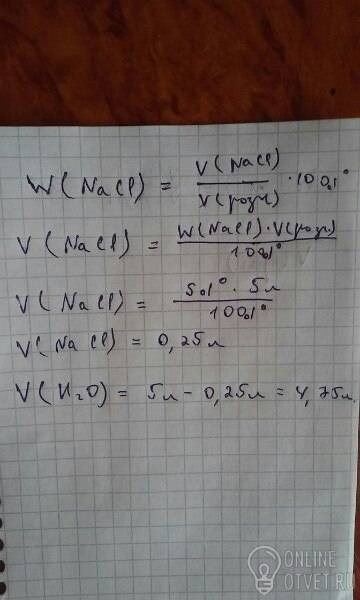 W(NaCl) = V(NaCl) / V(розч) · 100%
V(NaCl) = W(NaCl)·V(розч) / 100%
V(NaCl) = 5% · 5л / 100%
V(NaCl) = 0,25л
V(H₂O) = 5л - 0,25л = 4,75л.
ONLINE
OTVET.RU